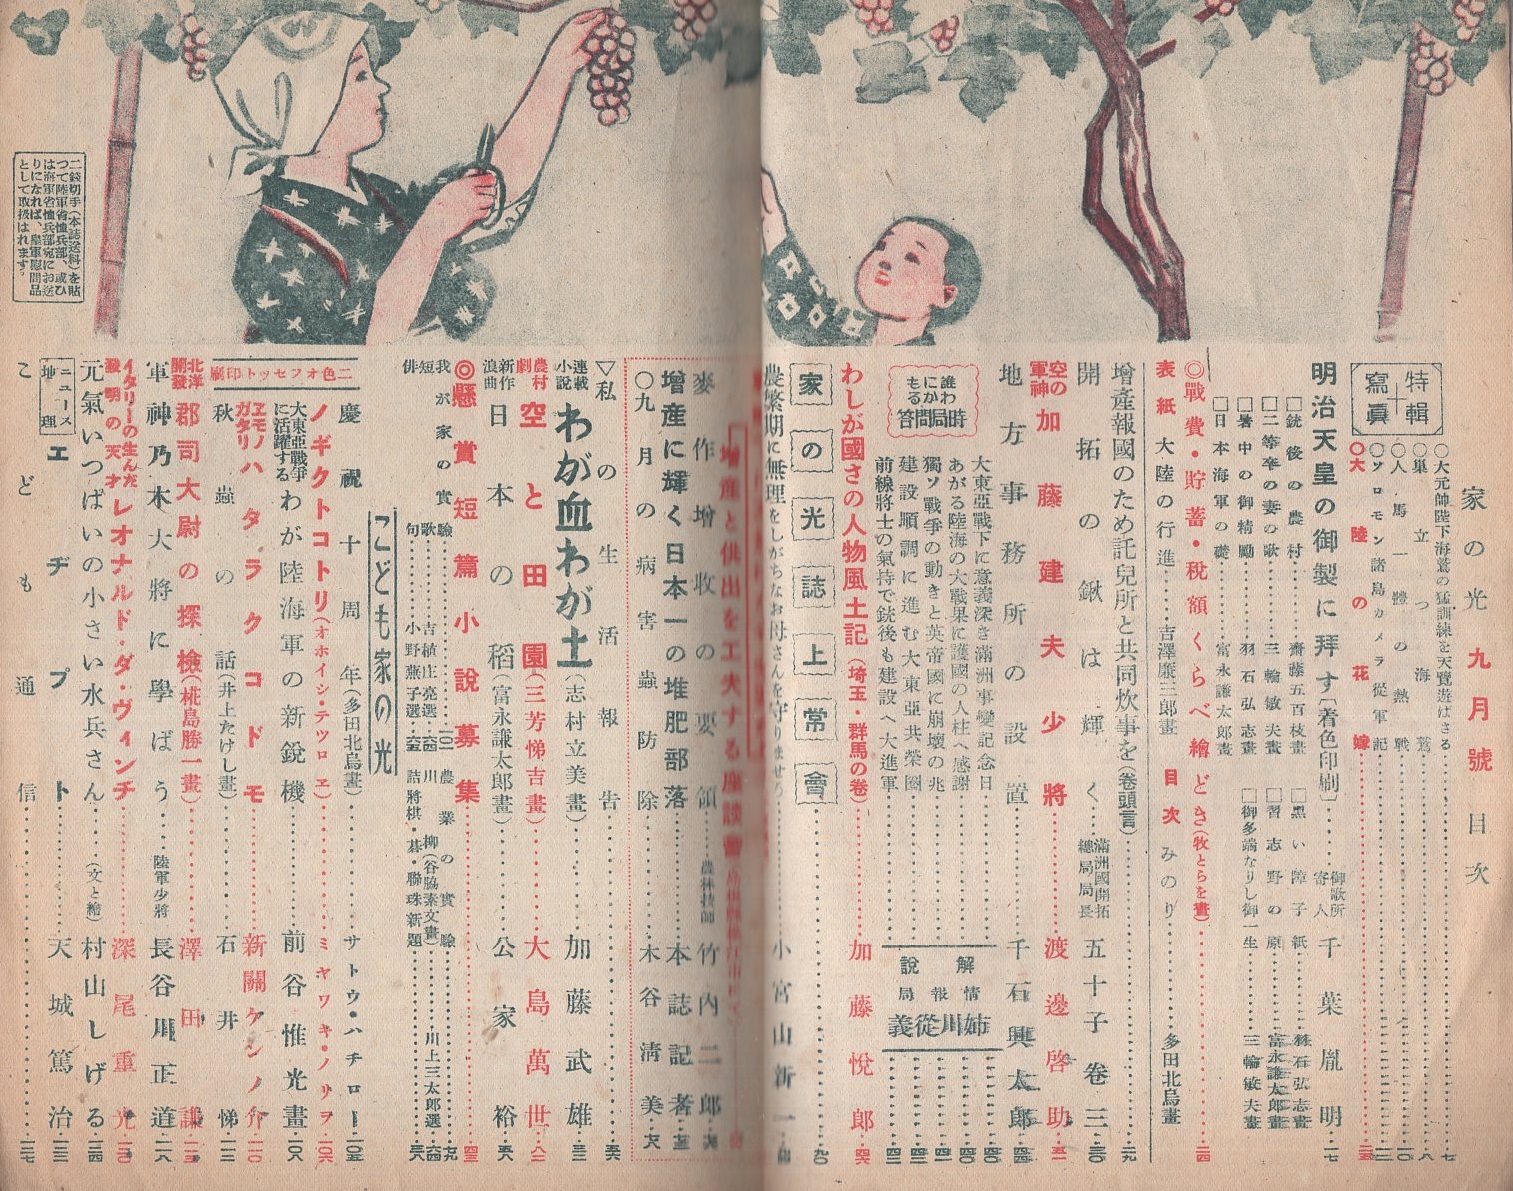 家の光 九月號 目次
特輯寫眞
○大元帥陛下海鷲の猛訓練を天覽遊ばさる
○巣立つ海鷲
○人馬一體の熱戰
○ソロモン諸島カメラ從軍記
○大陸の花嫁
明治天皇の御製に拜す〔着色印刷〕 御歌所寄人 千葉胤明
□銃後の農村 齋藤五百枝畫
□二等卒の妻の歌 三輪敏夫畫
□暑中の御精勵 羽石弘志畫
□日本海軍の礎 富永謙太郎畫
□黑い障子紙 羽石弘志畫
□習志野の原 富永謙太郎畫
□御多端なりし御一生 三輪敏夫畫
◎戰費・貯蓄・税額くらべ繪どき(牧とらを畫)
表紙 大陸の行進 吉澤廉三郎畫
目次 みのり 多田北烏畫
增產報國のため託兒所と共同炊事を(卷頭言)
開拓の鍬は輝く 滿洲國開拓總局局長 五十子卷三
空の軍神 加藤建夫少將 渡邊啓助
地方事務所の設置 千石興太郎
誰にもわかる時局問答
大東亞戰下に意義深き滿洲事變記念日
あがる陸海の大戰果に護國の人柱へ感謝
獨ソ戰爭の動きと英帝國に崩壞の兆
建設順調に進む大東亞共榮圈
前線將士の氣持で銃後も建設へ大進軍
解說 情報局 姉川從義
わしが國さの人物風土記(埼玉・群馬の卷) 加藤悅郎
家の光誌上常會
農繁期に無理をしがちなお母さんを守りませう 小宮山新一
增産と供出を工夫する座談會
麥作增收の要領 農林技師 竹内二郎
增産に輝く日本一の堆肥部落 本誌記者
○九月の病害蟲防除 木谷清美
▽私の生活報告
連載小説 わが血わが土(志村立美畫) 加藤武雄
農村劇 空と田園(三芳悌吉畫) 大島萬世
新作浪曲 日本の稻(富永謙太郎畫) 公家裕
◎懸賞短篇小說募集
我が家の實驗
農業の實驗
短歌 吉植庄亮選
川柳(谷脇素文畫) 川上三太郎選
俳句 小野燕子選
詰將棋・碁・聯珠新題
こども家の光
二色オフセット印刷
慶祝十周年(多田北烏畫) サトウ・ハチロー
ノギクトコトリ(オホイシ・テツロヱ) ミヤワキ・ノリヲ
大東亞戰爭に活躍する わが陸海軍の新鋭機 前谷惟光畫
ヱモノガタリ ハタラクコドモ 新關ケンノ介
秋蟲の話(井上たけし畫) 石井悌
北洋開發 郡司大尉の探檢(梶島勝一畫) 澤田謙
軍神乃木大將に學ばう 陸軍少將 長谷川正道
イタリーの生んだ發明の天才 レオナルド・ダ・ヴィンチ 深尾重光
元氣いつぱいの小さい水兵さん (文と繪) 村山しげる
ニュース地理 エヂプト 天城篤治
こども通信
二錢切手(本誌送料)を貼
つて陸軍省恤兵部、或ひ
は海軍省恤兵部宛にお送
りになれば、皇軍慰問品
として取扱はれます。